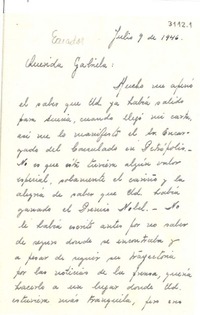 3112.1
Ecuador
Julio 9 de 1946.
Querida Gabriela:
Mucho me apenó
el saber que Ud ya había salido
para Suecia, cuando llegó mi carta,
así me lo manifestó el Sr Encar-
gado del Consulado en Petrópolis.
No es que ésta tuviera algún valor
especial, solamente el cariño y la
alegría de saber que Ud había
ganado el Premio Nobel. - No
le había escrito antes por no saber
de seguro donde se encontraba y
a pesar de seguir su trayectoria
por las noticias de la prensa, quería
hacerlo a un lugar donde Ud
estuviera más tranquila, pero eso